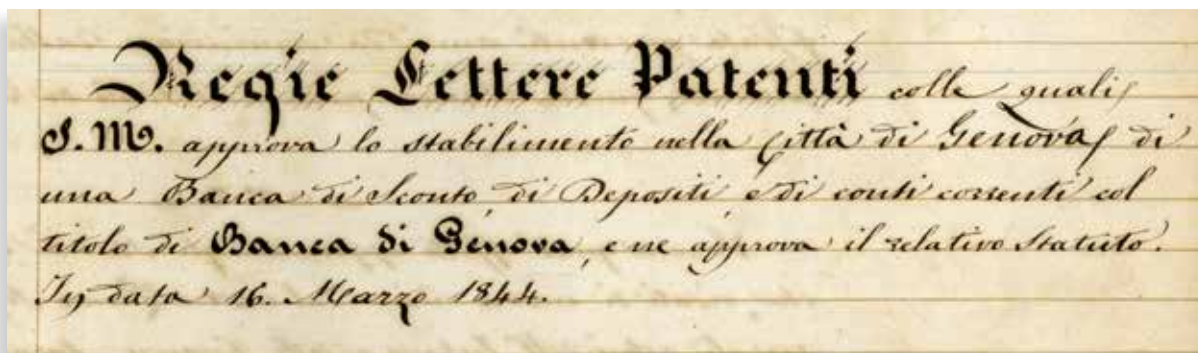 Regie Lettere Patenti colle quali
S. M. approva lo stabilimento nella Città di Genova di
una Banca di Sconto, di Depositi e di conti correnti col
titolo di Banca di Genova, e ne approva il relativo Statuto.
In data 16. Marzo 1844.